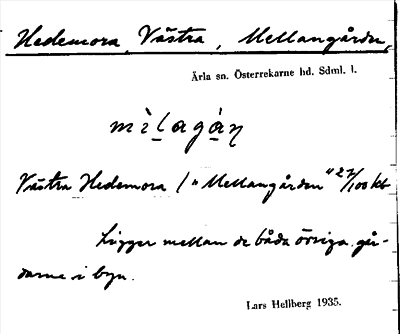 Hedemora, Västra, Mellangården
Ärla sn. Österrekarne hd. Sdml. l.
mìlagàn
Västra Hedemora / "Mellangården" 27/100 kb
Ligger mellan de båda övriga går-
darne i byn.
Lars Hellberg 1935.